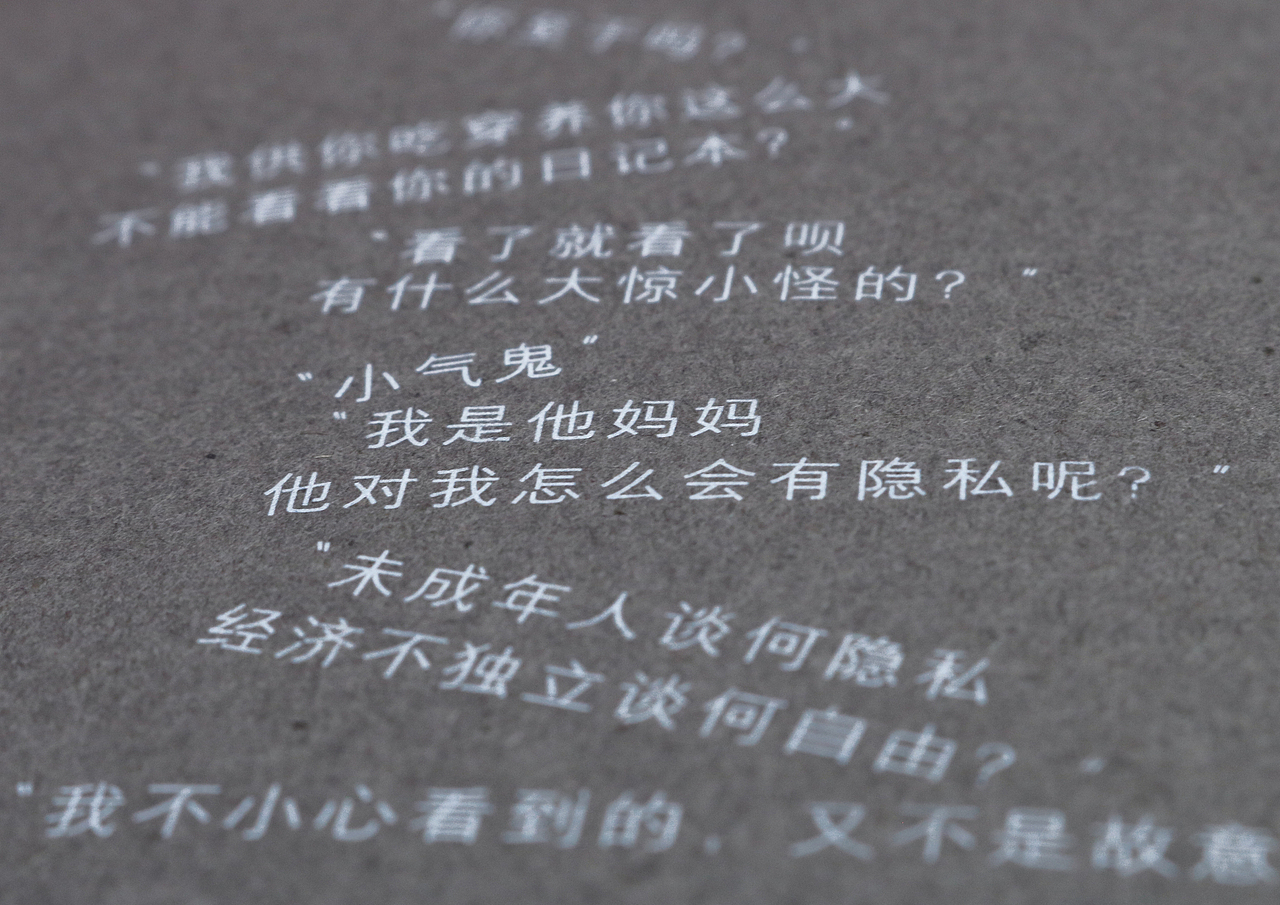 "我供你吃穿养你这么大
不能看看你的日记本？"
"看了就看了呗
有什么大惊小怪的？"
"小气鬼"
"我是他妈妈
他对我怎么会有隐私呢？"
"未成年人谈何隐私
经济不独立谈何自由？"
"我不小心看到的，又不是故意